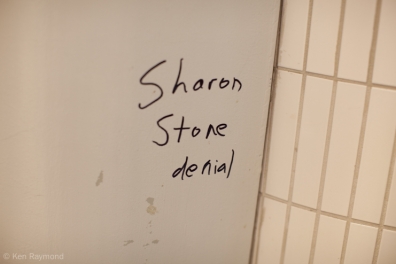 Sharon
Stone
denial
© Ken Raymond